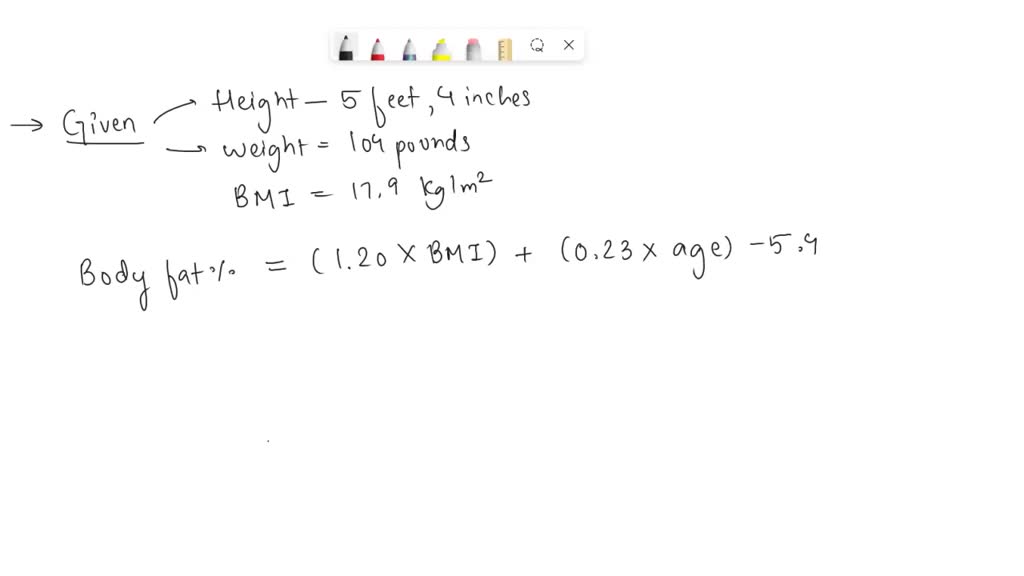 Height — 5 feet, 4 inches
→ Given
weight = 104 pounds
BMI = 17.9 kg/m²
Body fat% = (1.20 × BMI) + (0.23 × age) - 5.4